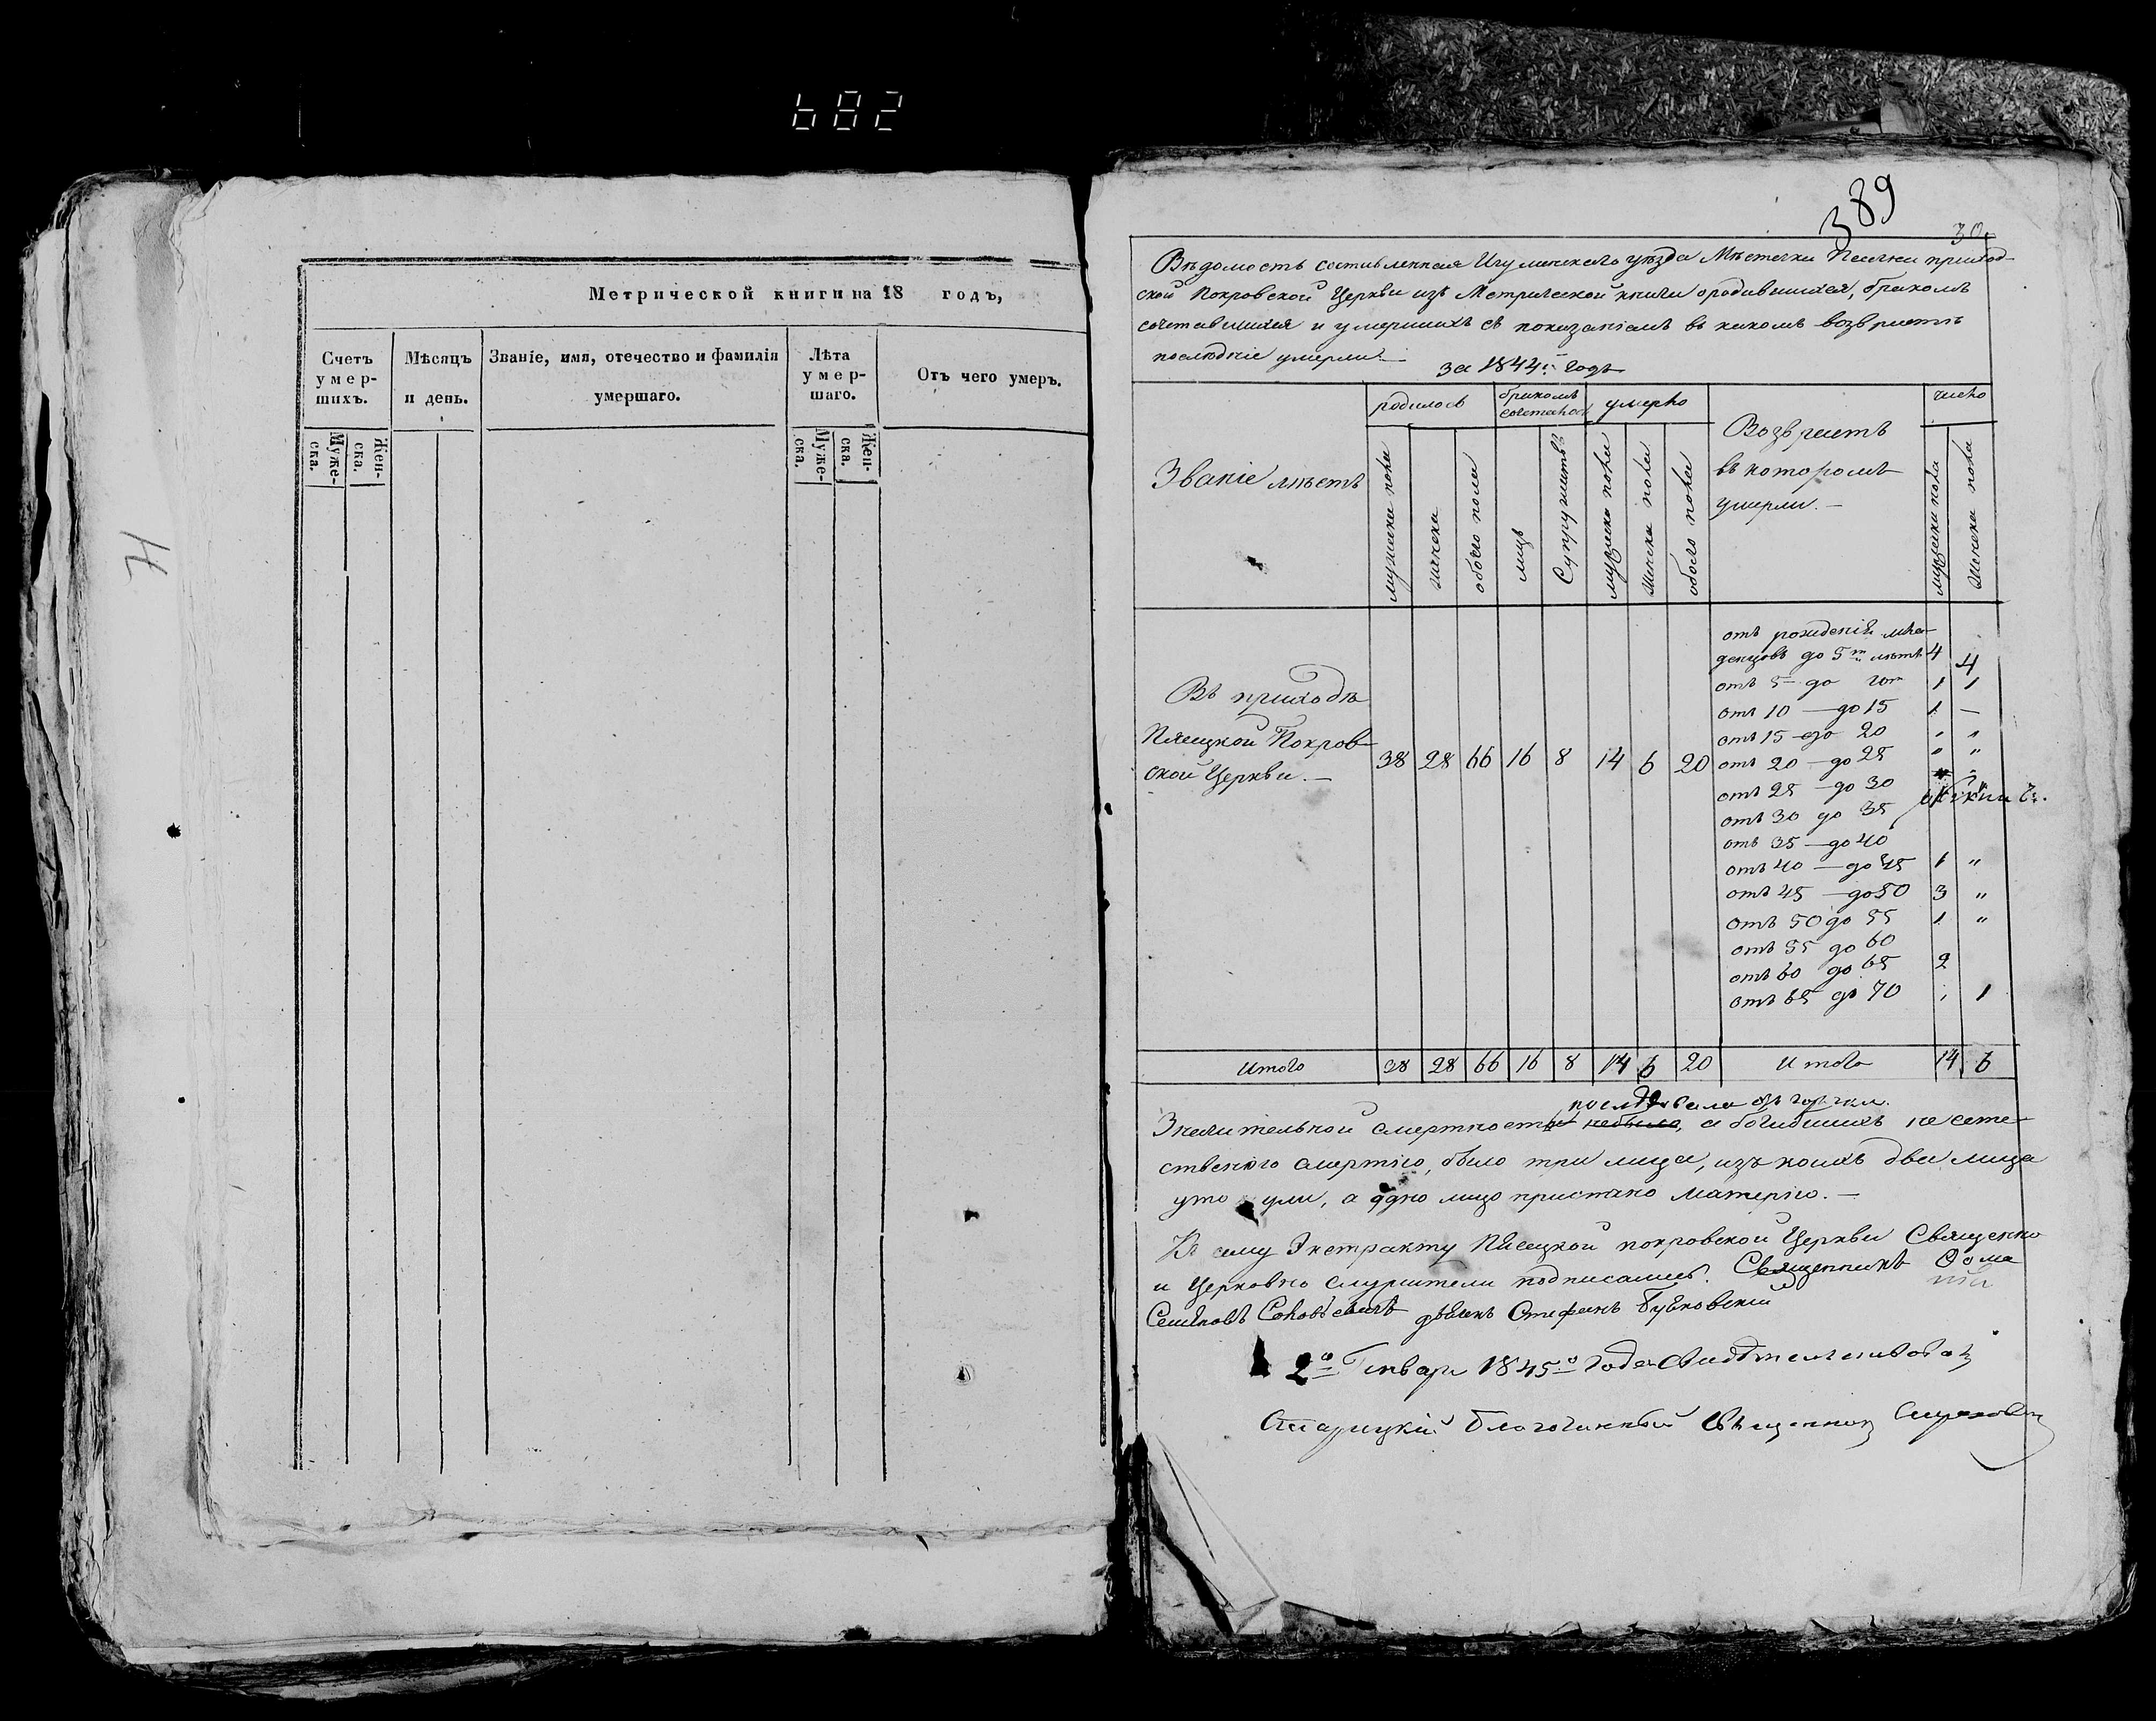 682
Метрической книги на 18 годъ,
Счетъ умер-шихъ.
Муже-ска.
Жен-ска.
Мѣсяцъ и день.
Званіе, имя, отечество и фамилія умершаго.
Лѣта умер-шаго.
Муже-ска.
Жен-ска.
Отъ чего умеръ.
389
30
Вѣдомость составленная Игуменскаго уѣзда Мѣстечка Песечка приход-
ской Покровской Церкви изъ Метрической книги о родившихся, бракомъ
сочетавшихся и умершихъ съ показаніемъ въ какомъ возврастѣ
послѣдніе умерли.
за 1844й годъ
Званіе мѣстъ
родилось
мужеска пола
женска
обоего пола
бракомъ сочеталось
лицъ
Супружествъ
умерло
мужеска пола
женска пола
обоего пола
Возврастъ
въ которомъ
умерли.—
число
мужеска пола
женска пола
Въ приходѣ
Пясецкой Покров-
ской Церкви.— 38 28 66 16 8 14 6 20
отъ рожденія мла-
денцовъ до 5ти лѣтъ 4 4
отъ 5 до 10ти 1 1
отъ 10 — до 15 1 —
отъ 15 — до 20 " "
отъ 20 — до 25 " "
отъ 25 — до 30
отъ 30 до 35
отъ 35 — до 40
отъ 40 — до 45 1 "
отъ 45 — до 50 3 "
отъ 50 до 55 1 "
отъ 55 до 60
отъ 60 до 65 2
отъ 65 до 70 1 1
Итого 38 28 66 16 8 14 6 20 Итого 14 6
Значительной смертности небыло, а погибшихъ не есте-
ственною смертію, было три лица, изъ коихъ два лица
утонули, а одно лицо приспано матерію.—
Къ сему Экстракту Пясецкой покровской Церкви Священно
и Церковно служители подписались. Священникъ Фома
дьячекъ Стефанъ Буйновскій
2го Генваря 1845го года свидѣтельствовалъ
благочинный Священникъ